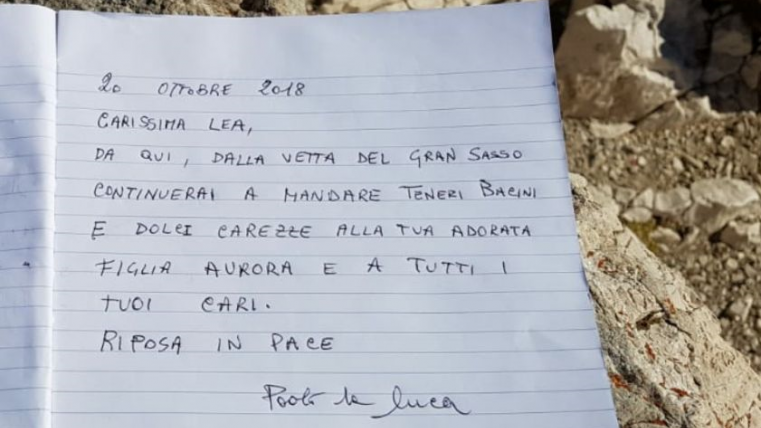 20 OTTOBRE 2018
CARISSIMA LEA,
DA QUI, DALLA VETTA DEL GRAN SASSO
CONTINUERAI A MANDARE TENERI BACINI
E DOLCI CAREZZE ALLA TUA ADORATA
FIGLIA AURORA E A TUTTI I
TUOI CARI.
RIPOSA IN PACE
Luca